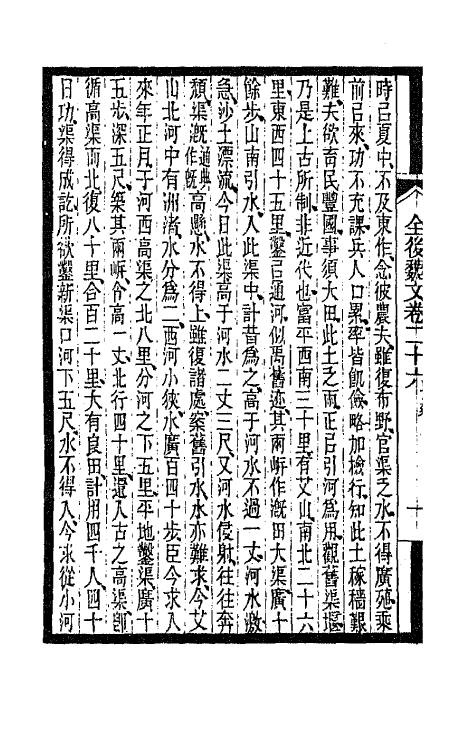 全後魏文卷二十六 十
時已夏中、不及東作、念彼農夫、雖復布野、官渠之水、不得廣殖、乘
前㠯來、功不充課、兵人口累、率皆飢儉、略加檢行、知此土稼穡艱
難、夫欲畜民豐國、事須大田、此土乏雨、正㠯引河爲用、觀舊渠堰、
乃是上古所制、非近代也、富平西南三十里、有艾山、南北二十六
里、東西四十五里、鑿㠯通河、似禹舊迹、其兩岍作溉田大渠、廣十
餘步、山南引水入此渠中、計昔爲之、高于河水不過一丈、河水激
急、沙土漂流、今日此渠高于河水二丈三尺、又河水侵射、往往奔
頹、渠溉通典作旣高懸、水不得上、雖復諸處案舊引水、水亦難求、今艾
山北、河中有洲渚、水分爲二、西河小狹、水廣百四十步、臣今求入
來年正月、于河西高渠之北八里、分河之下五里、平地鑿渠、廣十
五步、深五尺、築其兩岍、令高一丈、北行四十里、還入古之高渠、卽
循高渠而北、復八十里、合百二十里、大有良田、計用四千人、四十
日功、渠得成訖、所欲鑿新渠口、河下五尺、水不得入、今求從小河